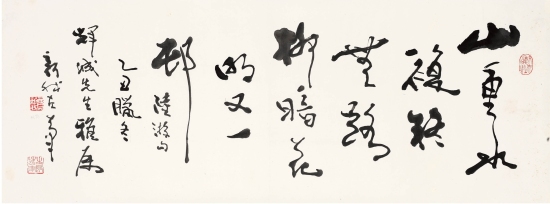 山重水
複疑
無路
柳暗花
明又一
邨
陸游句
乙丑臘冬
輝城先生雅屬